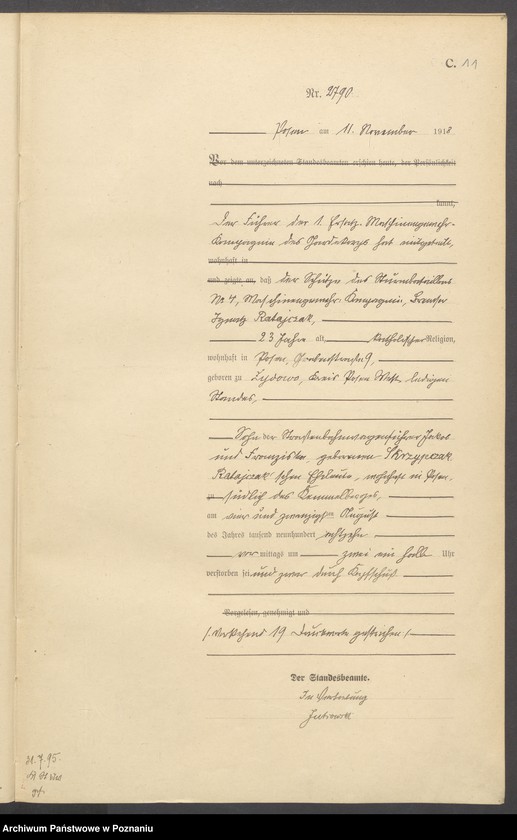 C. 11
Nr. 2790
Posen am 11. November 1918
Vor dem unterzeichneten Standesbeamten erschien heute, der Persönlichkeit
nach
kannt,
Der Führer der 1. Ersatz-Maschinengewehr-
Kompagnie des Gardekorps hat mitgeteilt,
wohnhaft in
und zeigte an, daß der Schütze des Sturmbataillons
No 4, Maschinengewehr-Kompagnie,
Ignatz Ratajczak,
23 Jahre alt, katholischer Religion,
wohnhaft in Posen, Grabenstraße 9,
geboren zu Zydowo, Kreis Posen West, ledigen
Standes,
Sohn der Straßenbahnwagenführer Jakob
und Franziska, geborenen Skrzypczak
Ratajczak'schen Eheleute, wohnhaft in Posen,
zu südlich des Kemmelberges,
am vier und zwanzigsten August
des Jahres tausend neunhundert achtzehn
vor mittags um zwei ein halb Uhr
verstorben sei und zwar durch Kopfschuß
Vorgelesen, genehmigt und
/. Vorstehend 19 Druckworte gestrichen /
Der Standesbeamte.
In Vertretung
21.7.95.
Archiwum Państwowe w Poznaniu